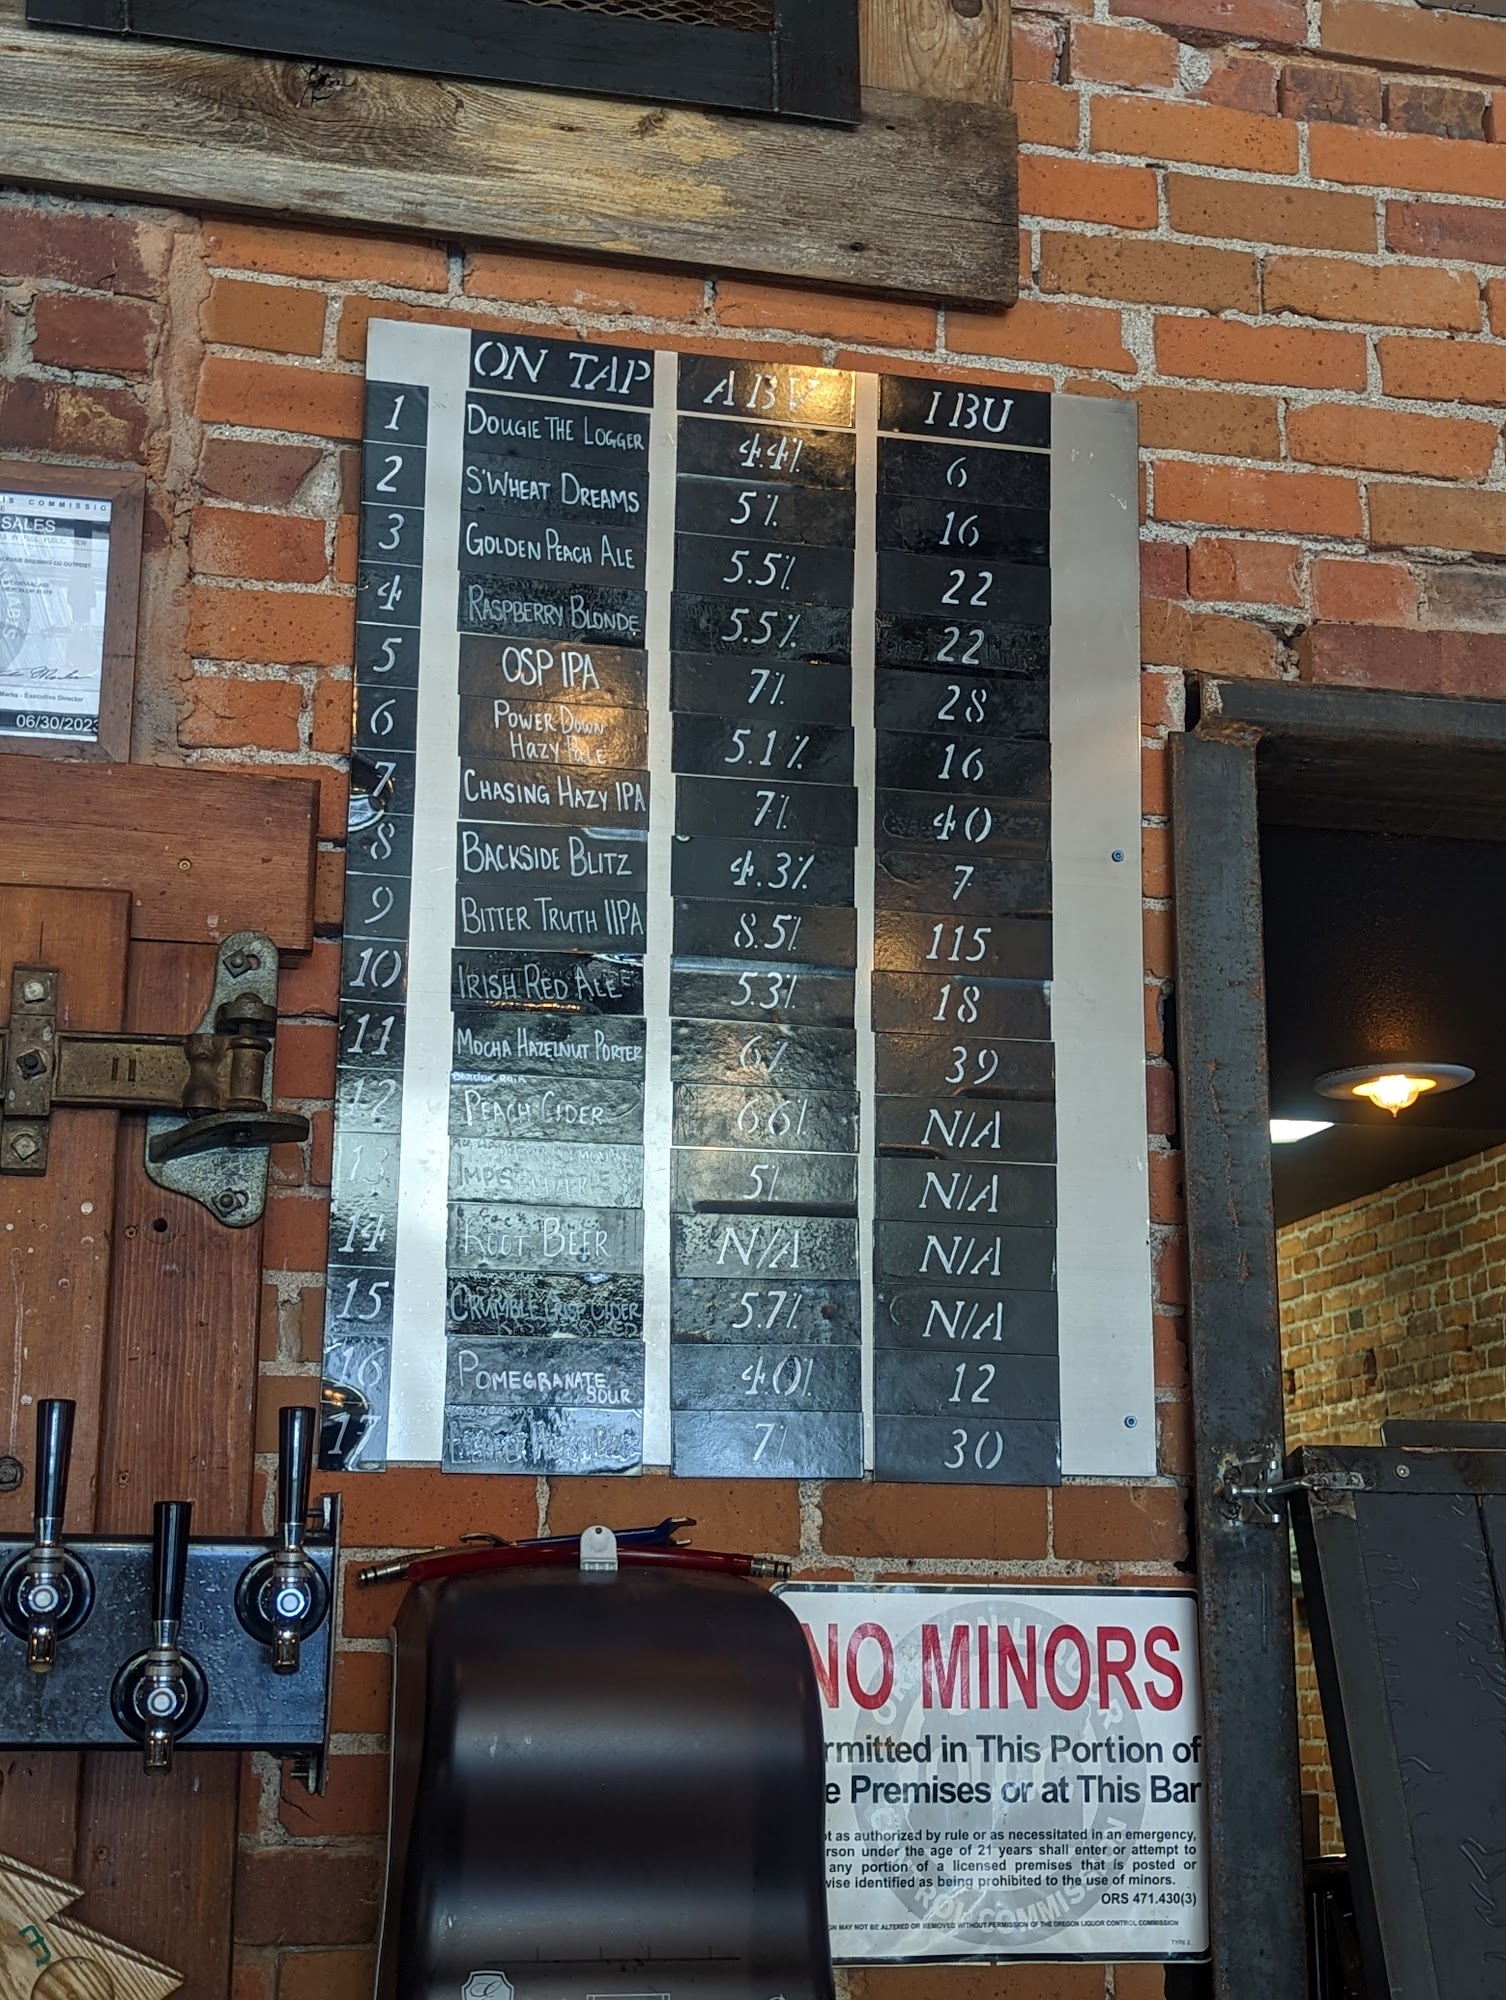 ON TAP ABV IBU
1 DOUGIE THE LOGGER 4.4% 6
2 S'WHEAT DREAMS 5% 16
3 GOLDEN PEACH ALE 5.5% 22
4 RASPBERRY BLONDE 5.5% 22
5 OSP IPA 7% 28
6 POWER DOWN HAZY PALE 5.1% 16
7 CHASING HAZY IPA 7% 40
8 BACKSIDE BLITZ 4.3% 7
9 BITTER TRUTH IIPA 8.5% 115
10 IRISH RED ALE 5.3% 18
11 MOCHA HAZELNUT PORTER 6% 39
12 PEACH CIDER 6.6% N/A
13 5% N/A
14 ROOT BEER N/A N/A
15 CRUMBLE CRISP CIDER 5.7% N/A
16 POMEGRANATE SOUR 4.0% 12
17 7% 30
IS COMMISSIO
SALES
Marks - Executive Director
06/30/2023
NO MINORS
rmitted in This Portion of
e Premises or at This Bar
t as authorized by rule or as necessitated in an emergency,
rson under the age of 21 years shall enter or attempt to
any portion of a licensed premises that is posted or
wise identified as being prohibited to the use of minors.
ORS 471.430(3)
GN MAY NOT BE ALTERED OR REMOVED WITHOUT PERMISSION OF THE OREGON LIQUOR CONTROL COMMISSION
TYPE 2